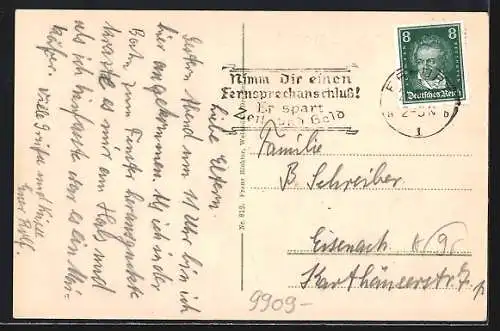 Liebe Eltern.
Gestern Abend um 11 Uhr bin ich
hier angekommen. Als ich in der
Bahn zum Fenster herausguckte
krabbelte es mir am Hals und
als ich hinfasste war es ein Mai-
käfer. Viele Grüße und Küsse
Euer Rolf.
Nimm Dir einen
Fernsprechanschluß!
Er spart
Zeit und Geld
8 8
Deutsches Reich
2-3 N
1
Familie
B. Schreiber
Eisenach
Karthäuserstr.
Nr. 812. Franz Richter,
9909-